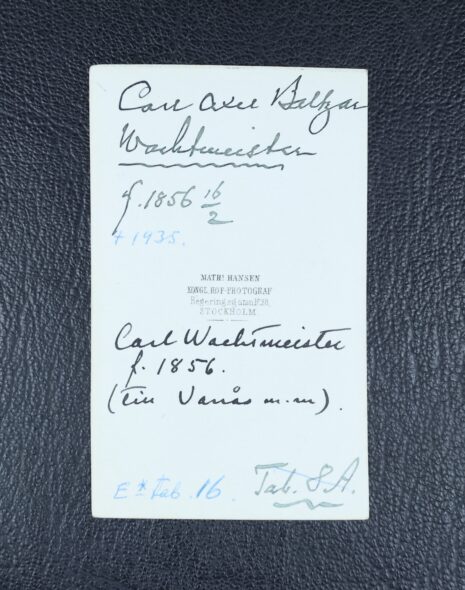 Carl Axel Baltzar
Wachtmeister
f. 1856 16/2
+ 1935.
MATHS HANSEN
KONGL. HOF-FOTOGRAF
Regeringsgatan
STOCKHOLM.
Carl Wachtmeister
f. 1856.
(till Vanås m.m).
Tab. 16.
Tab. 8A.